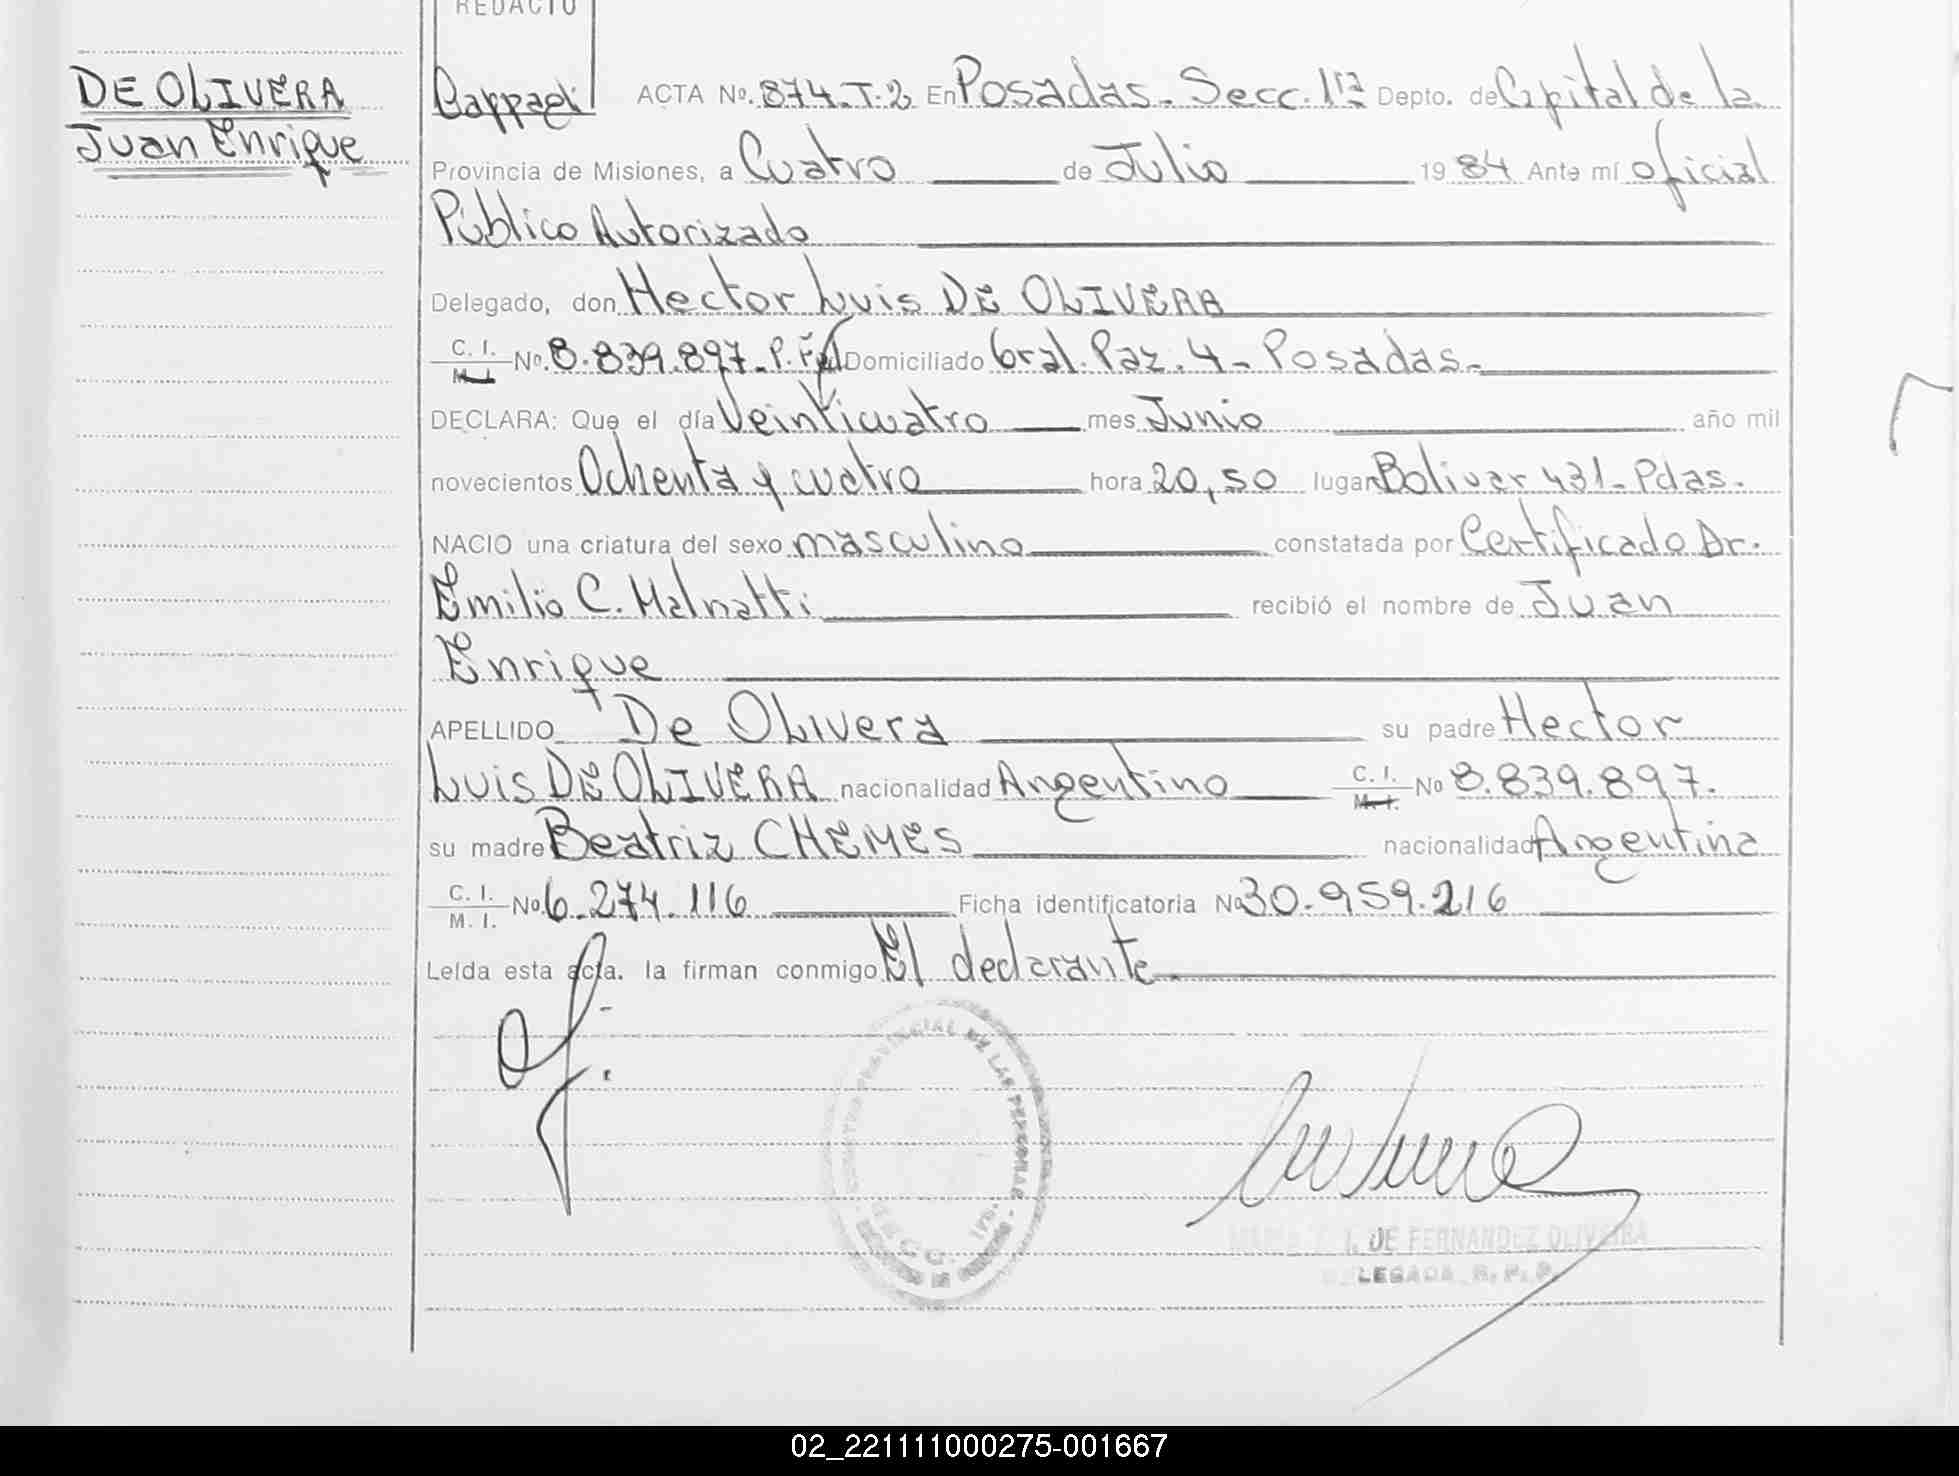 REDACTO
DE OLIVERA
Juan Enrique
ACTA No. 874-T-2 En Posadas - Secc. 1ra Depto. de Capital de la
Provincia de Misiones, a Cuatro de Julio 19 84 Ante mí oficial
Público Autorizado
Delegado, don Hector Luis DE OLIVERA
C. I.
M. I.
No. 8.839.897 - P. Fed Domiciliado Gral. Paz. 4 - Posadas -
DECLARA: Que el día Veinticuatro mes Junio año mil
novecientos Ochenta y cuatro hora 20,50 lugar Bolivar 431 - Pdas.
NACIO una criatura del sexo masculino constatada por Certificado Dr.
Emilio C. Malnatti recibió el nombre de Juan
Enrique
APELLIDO De Olivera su padre Hector
Luis DE OLIVERA nacionalidad Argentino C. I. M. I. No 8.839.897.
su madre Beatriz CHEMES nacionalidad Argentina
C. I.
M. I.
No. 6.274.116 Ficha identificatoria No 30.959.216
Leída esta acta. la firman conmigo El declarante
PROVINCIAL DE LAS PERSONAS
DE FERNANDEZ OLIVEIRA
DELEGADA R. P. P.
02_221111000275-001667